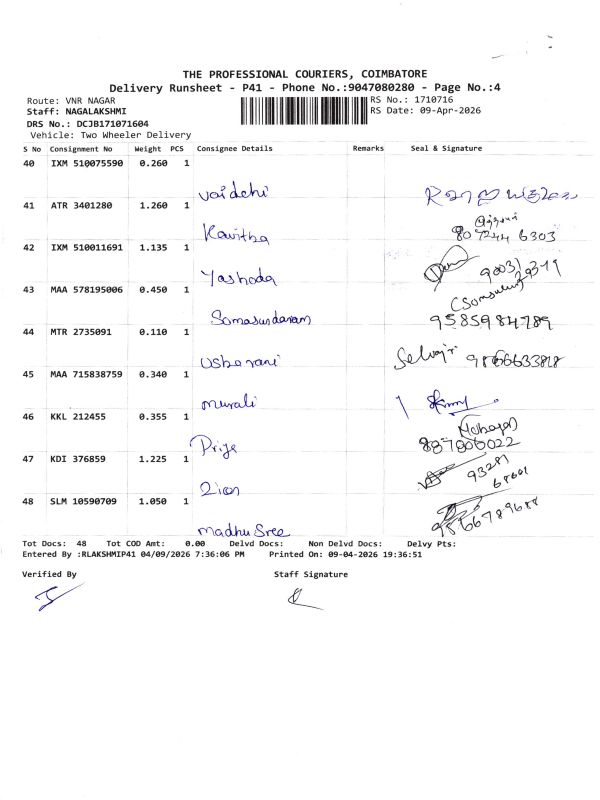 THE PROFESSIONAL COURIERS, COIMBATORE
Delivery Runsheet - P41 - Phone No.:9047080280 - Page No.:4
Route: VNR NAGAR RS No.: 1710716
Staff: NAGALAKSHMI RS Date: 09-Apr-2026
DRS No.: DCJB171071604
Vehicle: Two Wheeler Delivery
S No Consignment No Weight PCS Consignee Details Remarks Seal & Signature
40 IXM 510075590 0.260 1
Vaidehi
41 ATR 3401280 1.260 1
Kavitha 6303
42 IXM 510011691 1.135 1
Yashoda
43 MAA 578195006 0.450 1
Somasundaram 9585984789
44 MTR 2735091 0.110 1
Usharani Selvaji
45 MAA 715838759 0.340 1
Murali
46 KKL 212455 0.355 1
47 KDI 376859 1.225 1
93281
48 SLM 10590709 1.050 1
Madhu Sree
Tot Docs: 48 Tot COD Amt: 0.00 Delvd Docs: Non Delvd Docs: Delvy Pts:
Entered By :RLAKSHMIP41 04/09/2026 7:36:06 PM Printed On: 09-04-2026 19:36:51
Verified By Staff Signature